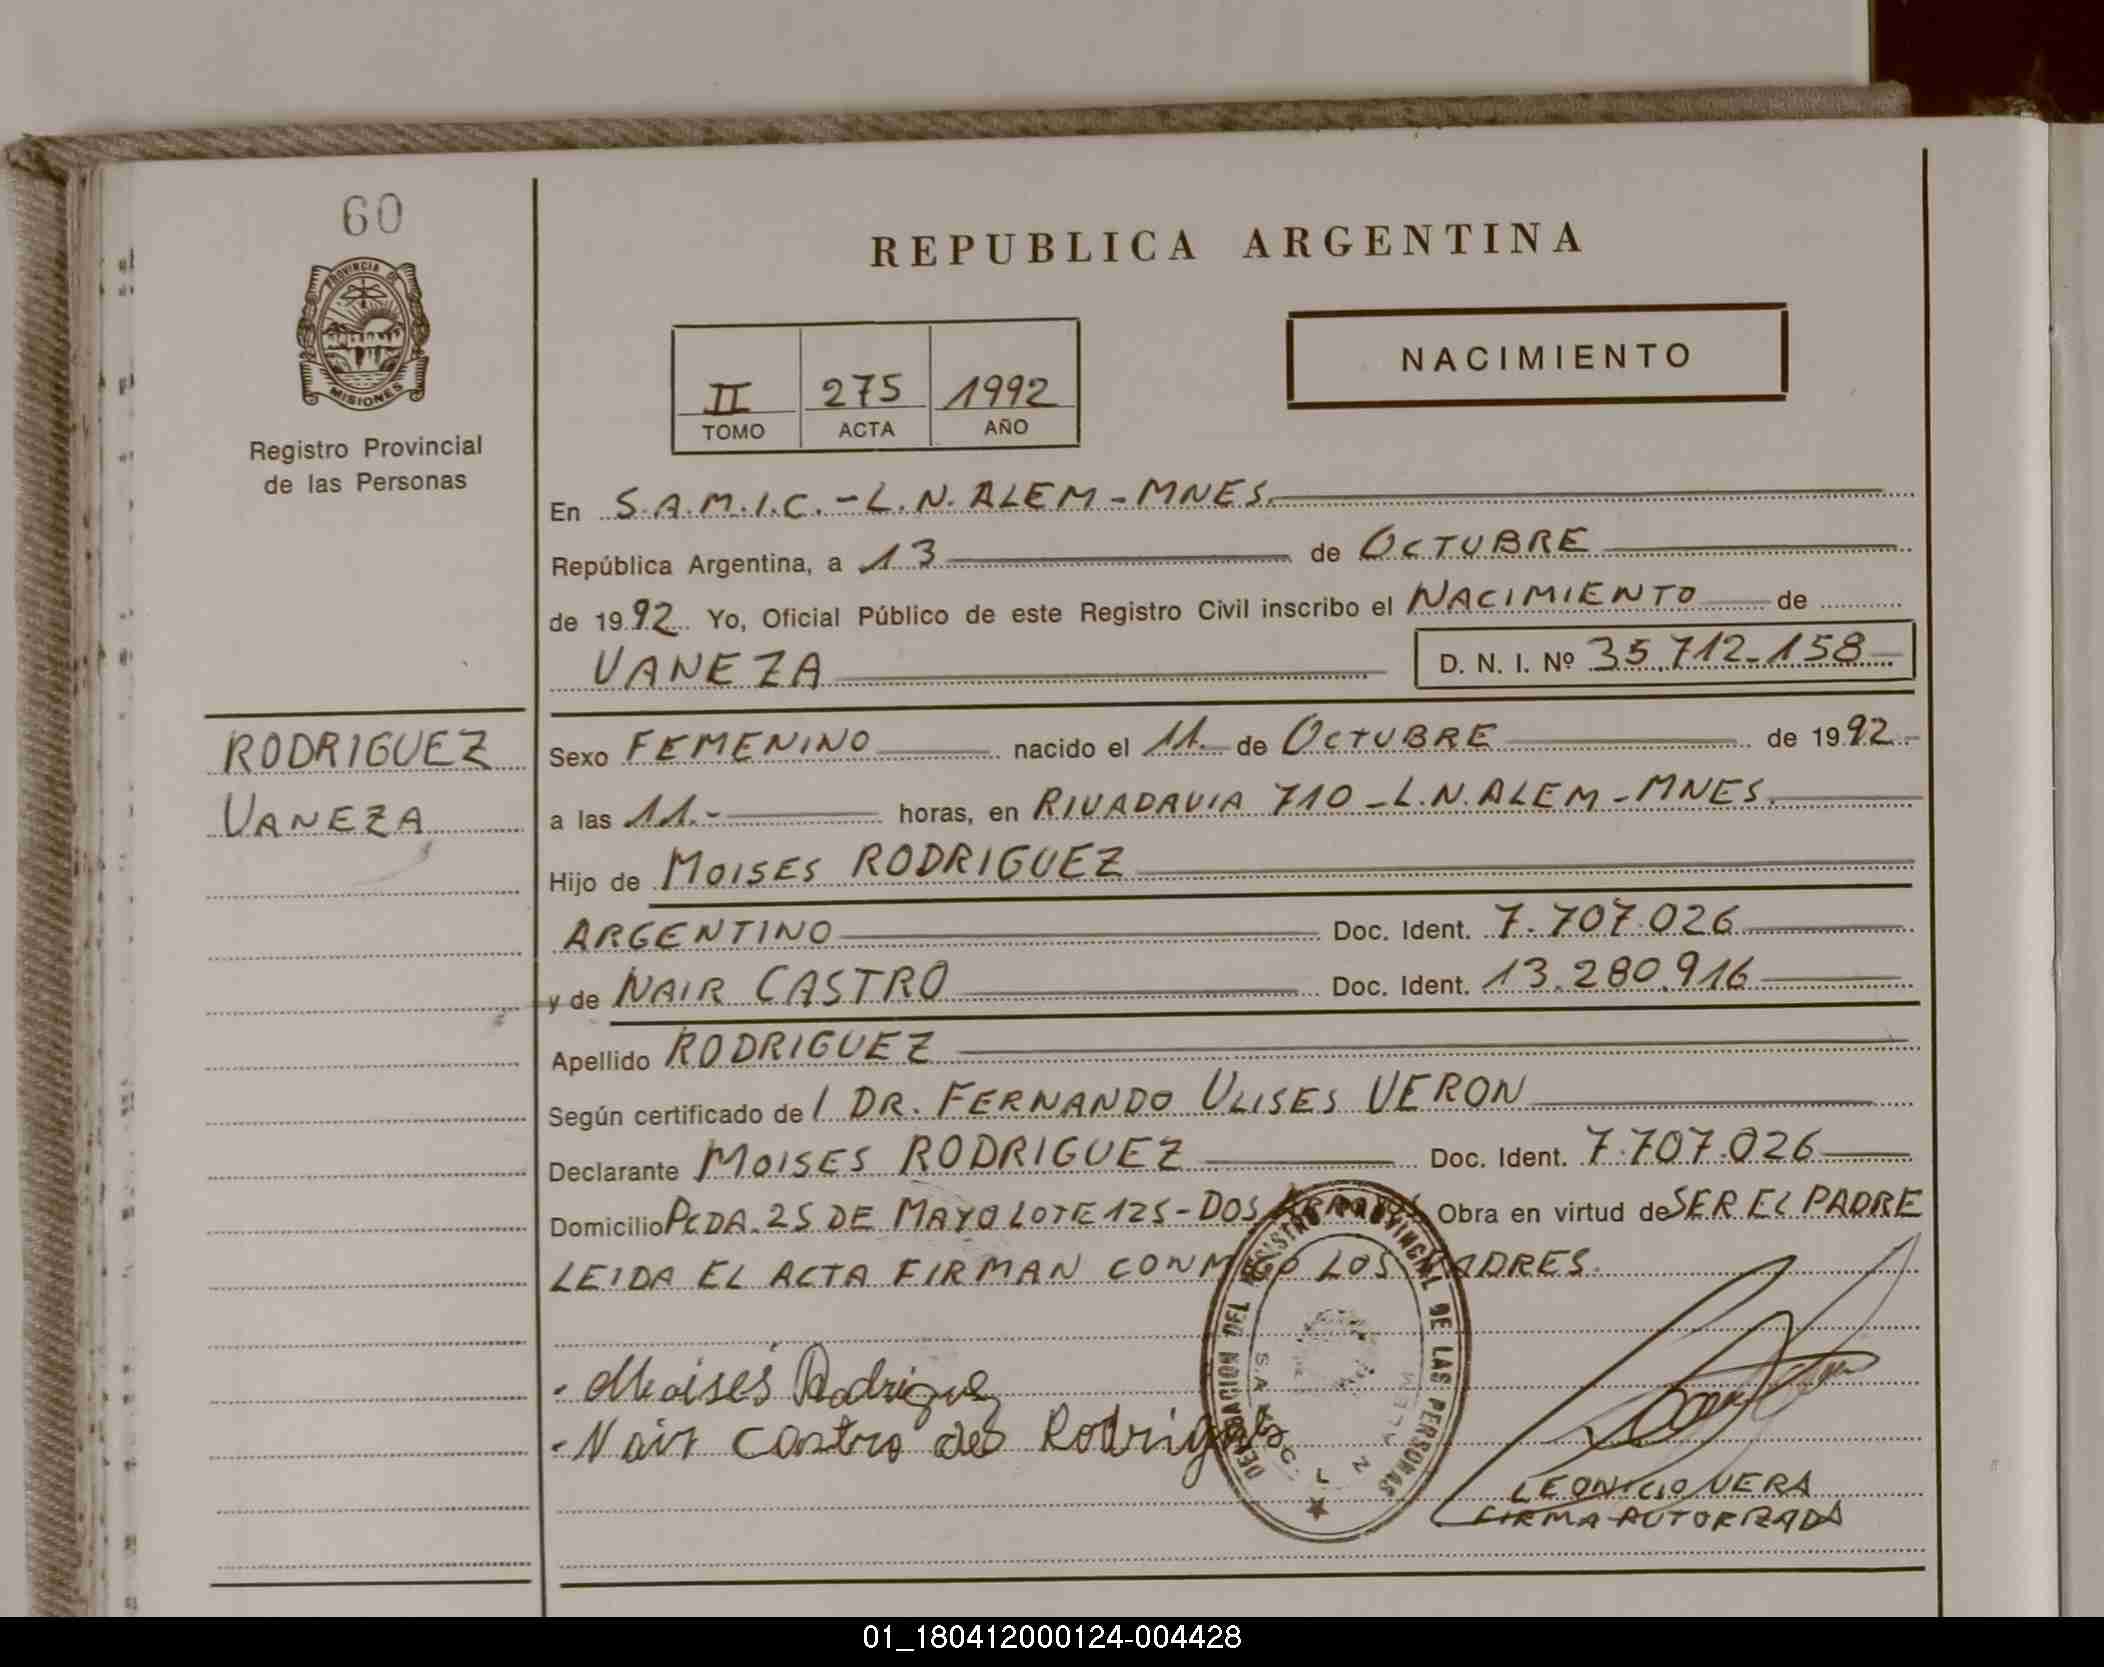 60
PROVINCIA DE
MISIONES
Registro Provincial
de las Personas
REPUBLICA ARGENTINA
II 275 1992
TOMO ACTA AÑO
NACIMIENTO
En S.A.M.I.C.-L.N.ALEM-MNES.
República Argentina, a 13 de OCTUBRE
de 1992 Yo, Oficial Público de este Registro Civil inscribo el NACIMIENTO de
VANEZA D. N. I. Nº 35.712-158
RODRIGUEZ
VANEZA
Sexo FEMENINO nacido el 11. de OCTUBRE de 1992.-
a las 11.- horas, en RIVADAVIA 710-L.N.ALEM-MNES.
Hijo de MOISES RODRIGUEZ
ARGENTINO Doc. Ident. 7.707.026
y de NAIR CASTRO Doc. Ident. 13.280.916
Apellido RODRIGUEZ
Según certificado de / DR. FERNANDO ULISES VERON
Declarante MOISES RODRIGUEZ Doc. Ident. 7.707.026
Domicilio PCDA. 25 DE MAYO LOTE 125-DOS ARROYOS Obra en virtud de SER EL PADRE
LEIDA EL ACTA FIRMAN CONMIGO LOS PADRES.
Moisés Rodriguez
Nair Castro de Rodriguez
DELEGACION DEL REGISTRO PROVINCIAL DE LAS PERSONAS
S.A.M.I.C. L N ALEM
LEONICIO VERA
FIRMA AUTORIZADA
01_180412000124-004428